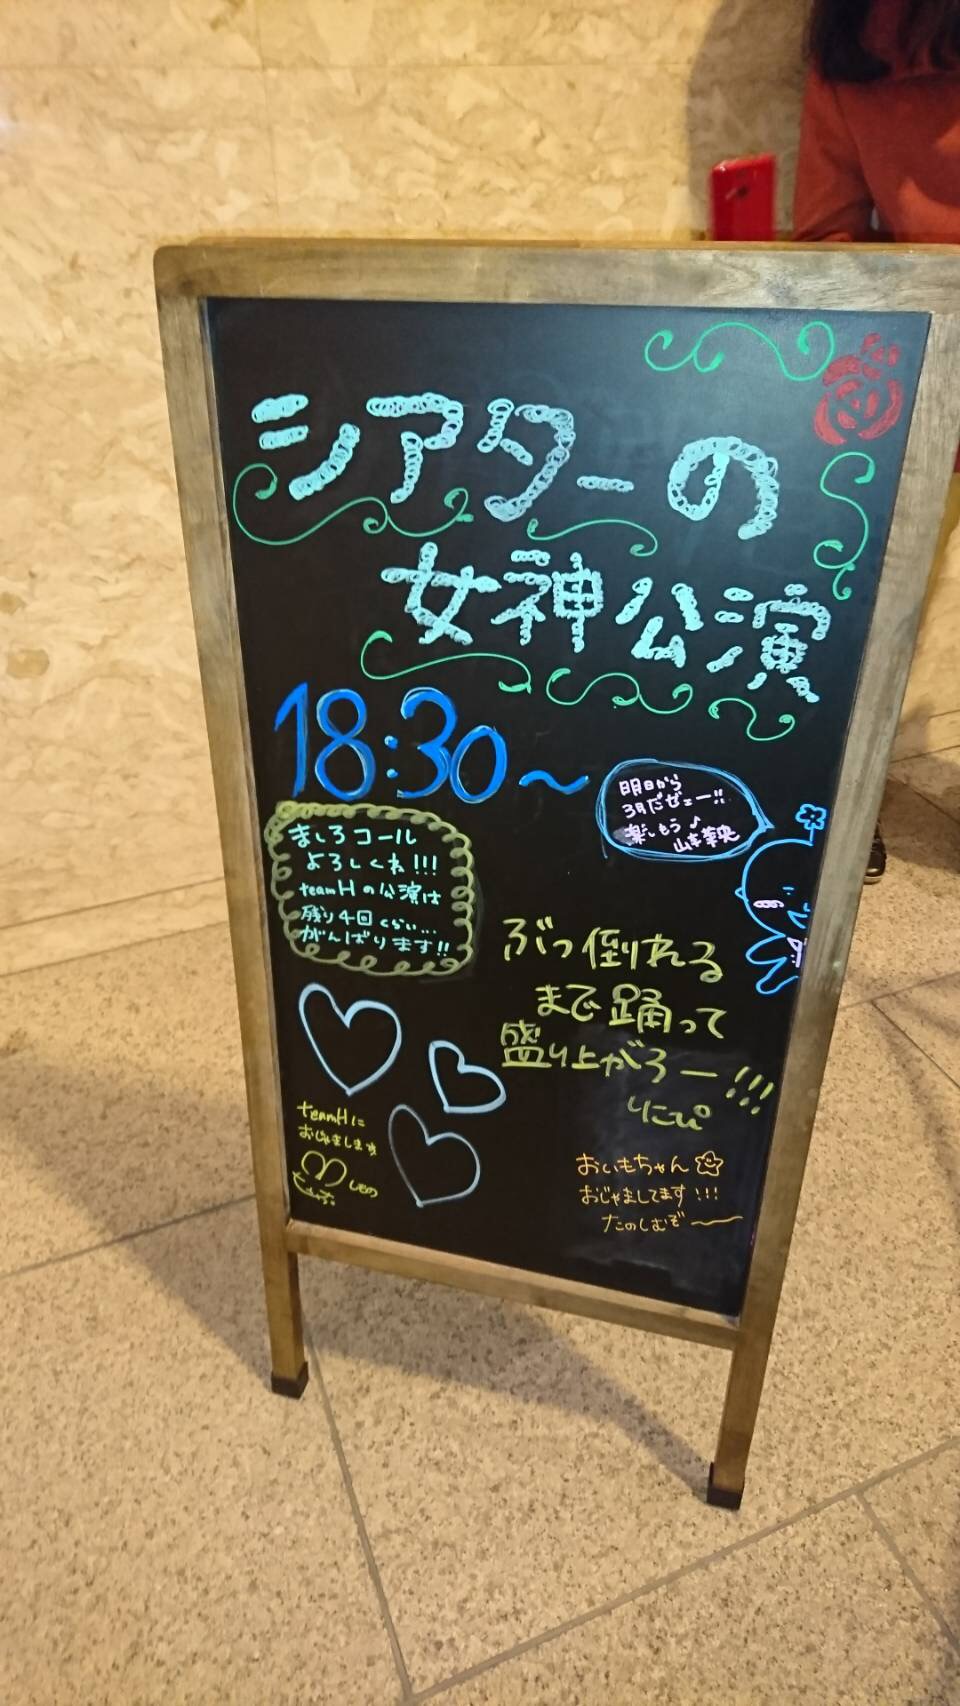 シアターの
女神公演
18:30～
明日から
3月だぜェー!!
楽しもう♪
山本華央
ましろコール
よろしくね!!!
teamHの公演は
残り4回くらい...
がんばります!!
ぶっ倒れる
まで踊って
盛り上がろー!!!
りこぴ
teamHに
おじゃまします
しもの
おいもちゃん
おじゃましてます!!!
たのしむぞ～